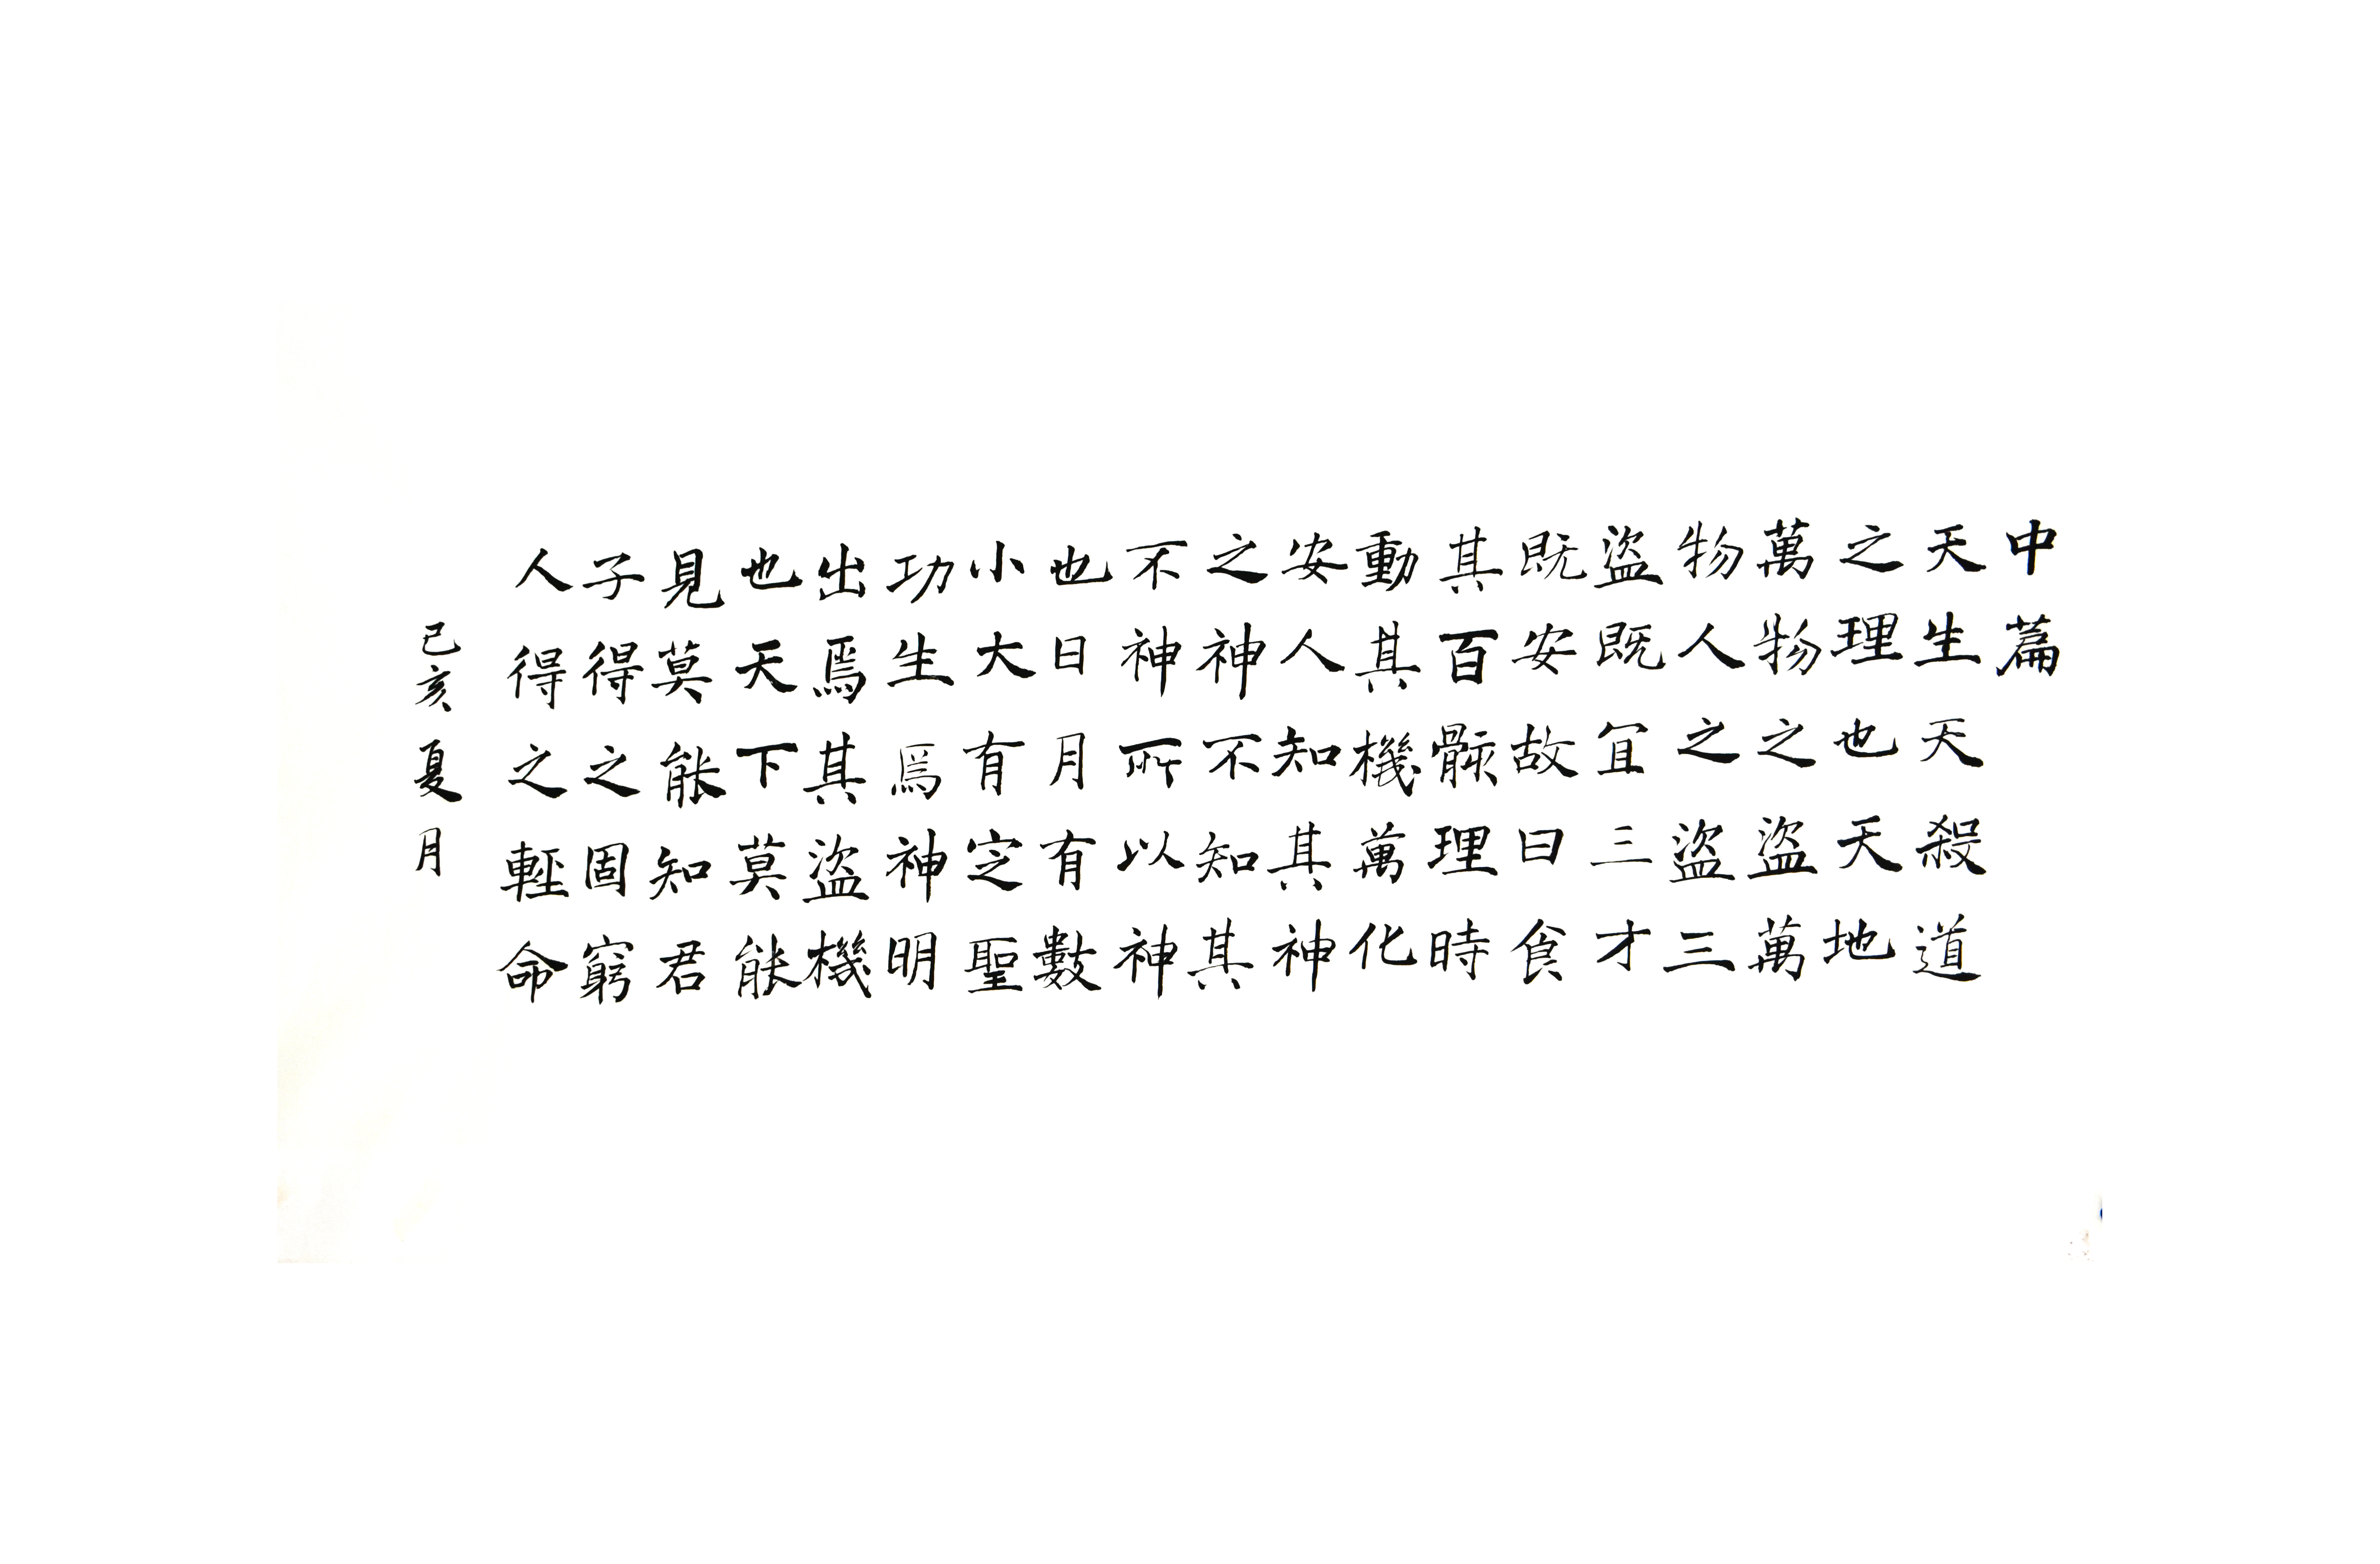 中篇
天生天殺道
之理也天地
萬物之盜萬
物人之盜三
盜既宜三才
既安故曰食
其百骸理時
動其機萬化
安人知其神
之神不知其
不神所以神
也日月有數
小大有定聖
功生焉神明
出焉其盜機
也天下莫能
見莫能知君
子得之固窮
人得之輕命
己亥夏月